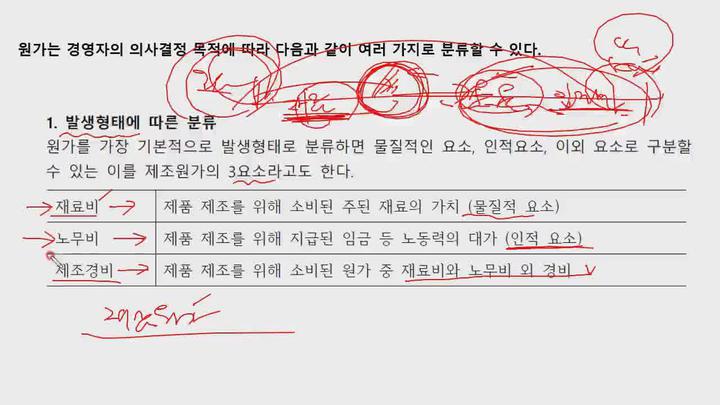 원가는 경영자의 의사결정 목적에 따라 다음과 같이 여러 가지로 분류할 수 있다.
1. 발생형태에 따른 분류
원가를 가장 기본적으로 발생형태로 분류하면 물질적인 요소, 인적요소, 이외 요소로 구분할
수 있는 이를 제조원가의 3요소라고도 한다.
재료비 제품 제조를 위해 소비된 주된 재료의 가치 (물질적 요소)
노무비 제품 제조를 위해 지급된 임금 등 노동력의 대가 (인적 요소)
제조경비 제품 제조를 위해 소비된 원가 중 재료비와 노무비 외 경비